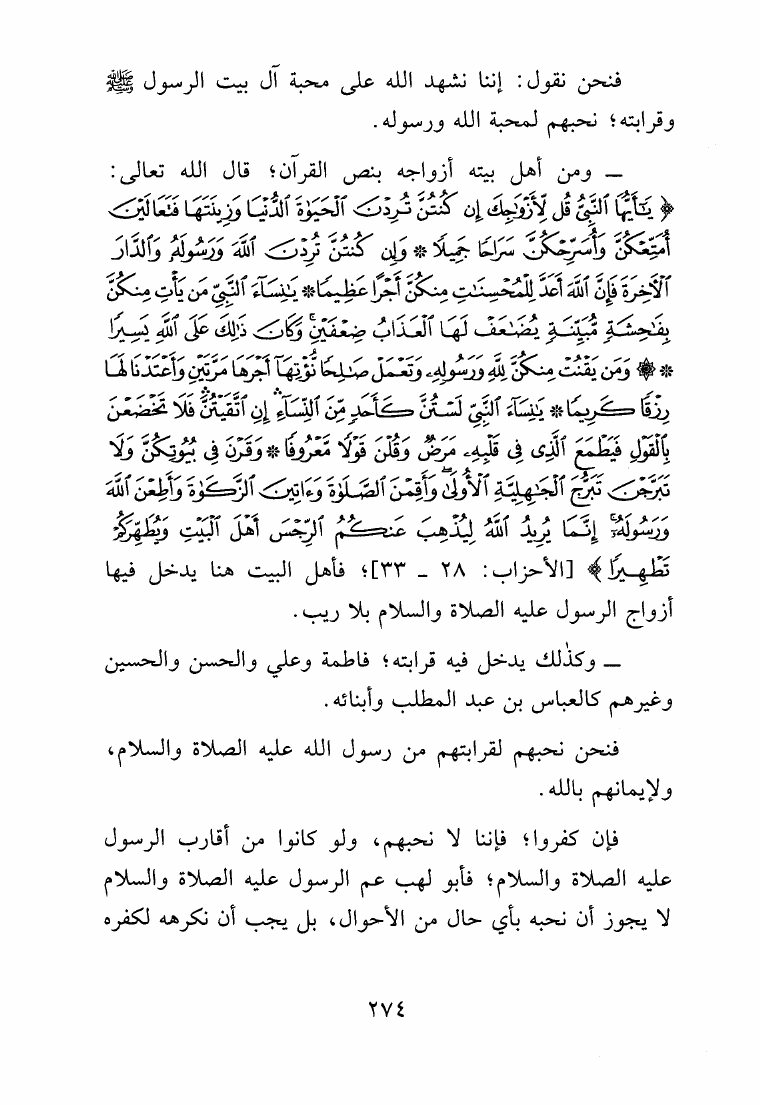 فنحن نقول: إننا نشهد الله على محبة آل بيت الرسول ﷺ
وقرابته؛ نحبهم لمحبة الله ورسوله.
ـ ومن أهل بيته أزواجه بنص القرآن؛ قال الله تعالى:
﴿ يَٰٓأَيُّهَا ٱلنَّبِىُّ قُل لِّأَزْوَٰجِكَ إِن كُنتُنَّ تُرِدْنَ ٱلْحَيَوٰةَ ٱلدُّنْيَا وَزِينَتَهَا فَتَعَالَيْنَ
أُمَتِّعْكُنَّ وَأُسَرِّحْكُنَّ سَرَاحًا جَمِيلًا * وَإِن كُنتُنَّ تُرِدْنَ ٱللَّهَ وَرَسُولَهُۥ وَٱلدَّارَ
ٱلْأَخِرَةَ فَإِنَّ ٱللَّهَ أَعَدَّ لِلْمُحْسِنَٰتِ مِنكُنَّ أَجْرًا عَظِيمًا * يَٰنِسَآءَ ٱلنَّبِىِّ مَن يَأْتِ مِنكُنَّ
بِفَٰحِشَةٍ مُّبَيِّنَةٍ يُضَٰعَفْ لَهَا ٱلْعَذَابُ ضِعْفَيْنِ ۚ وَكَانَ ذَٰلِكَ عَلَى ٱللَّهِ يَسِيرًا
* ۞ وَمَن يَقْنُتْ مِنكُنَّ لِلَّهِ وَرَسُولِهِۦ وَتَعْمَلْ صَٰلِحًا نُّؤْتِهَآ أَجْرَهَا مَرَّتَيْنِ وَأَعْتَدْنَا لَهَا
رِزْقًا كَرِيمًا * يَٰنِسَآءَ ٱلنَّبِىِّ لَسْتُنَّ كَأَحَدٍ مِّنَ ٱلنِّسَآءِ ۚ إِنِ ٱتَّقَيْتُنَّ فَلَا تَخْضَعْنَ
بِٱلْقَوْلِ فَيَطْمَعَ ٱلَّذِى فِى قَلْبِهِۦ مَرَضٌ وَقُلْنَ قَوْلًا مَّعْرُوفًا * وَقَرْنَ فِى بُيُوتِكُنَّ وَلَا
تَبَرَّجْنَ تَبَرُّجَ ٱلْجَٰهِلِيَّةِ ٱلْأُولَىٰ ۖ وَأَقِمْنَ ٱلصَّلَوٰةَ وَءَاتِينَ ٱلزَّكَوٰةَ وَأَطِعْنَ ٱللَّهَ
وَرَسُولَهُۥٓ ۚ إِنَّمَا يُرِيدُ ٱللَّهُ لِيُذْهِبَ عَنكُمُ ٱلرِّجْسَ أَهْلَ ٱلْبَيْتِ وَيُطَهِّرَكُمْ
تَطْهِيرًا ﴾ [الأحزاب: ٢٨ ـ ٣٣]؛ فأهل البيت هنا يدخل فيها
أزواج الرسول عليه الصلاة والسلام بلا ريب.
ـ وكذلك يدخل فيه قرابته؛ فاطمة وعلي والحسن والحسين
وغيرهم كالعباس بن عبد المطلب وأبنائه.
فنحن نحبهم لقرابتهم من رسول الله عليه الصلاة والسلام،
ولإيمانهم بالله.
فإن كفروا؛ فإننا لا نحبهم، ولو كانوا من أقارب الرسول
عليه الصلاة والسلام؛ فأبو لهب عم الرسول عليه الصلاة والسلام
لا يجوز أن نحبه بأي حال من الأحوال، بل يجب أن نكرهه لكفره
٢٧٤